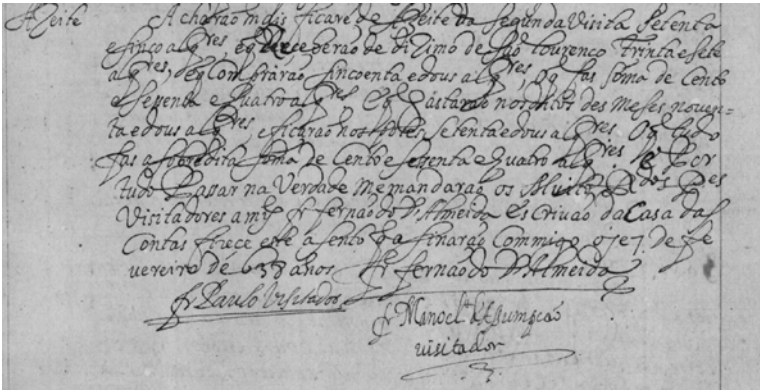 Azeite Acharão mais ficare de Azeite da segunda Visita setenta
e sinco alq.res e q̃ Receberão de dizimo de são Lourenço trinta e sete
alq.res, e q̃ Comprárão sincoenta e dous alq.res, o q̃ fas soma de Cento
e sesenta e quatro alq.res e q̃ Gastarão nos ditos des meses noven-
ta e dous alq.res e ficarão nos potes, setenta e dous alq.res o q̃ tudo
fas a sobredita soma de Cento e sesenta e quatro alq.res E Por
tudo Passar na Verdade me mandarão os Muito R.dos P.es
Visitadores a mỹ fr fernãodo d'Almeida esCrivão da Casa das
Contas fizece este asento q̃ asinarão Commigo oje 7 de fe
vereiro de 638 anos fr fernãodo d'Almeida
fr Paulo Visitador
fr Manoel da Asumpção
visitador